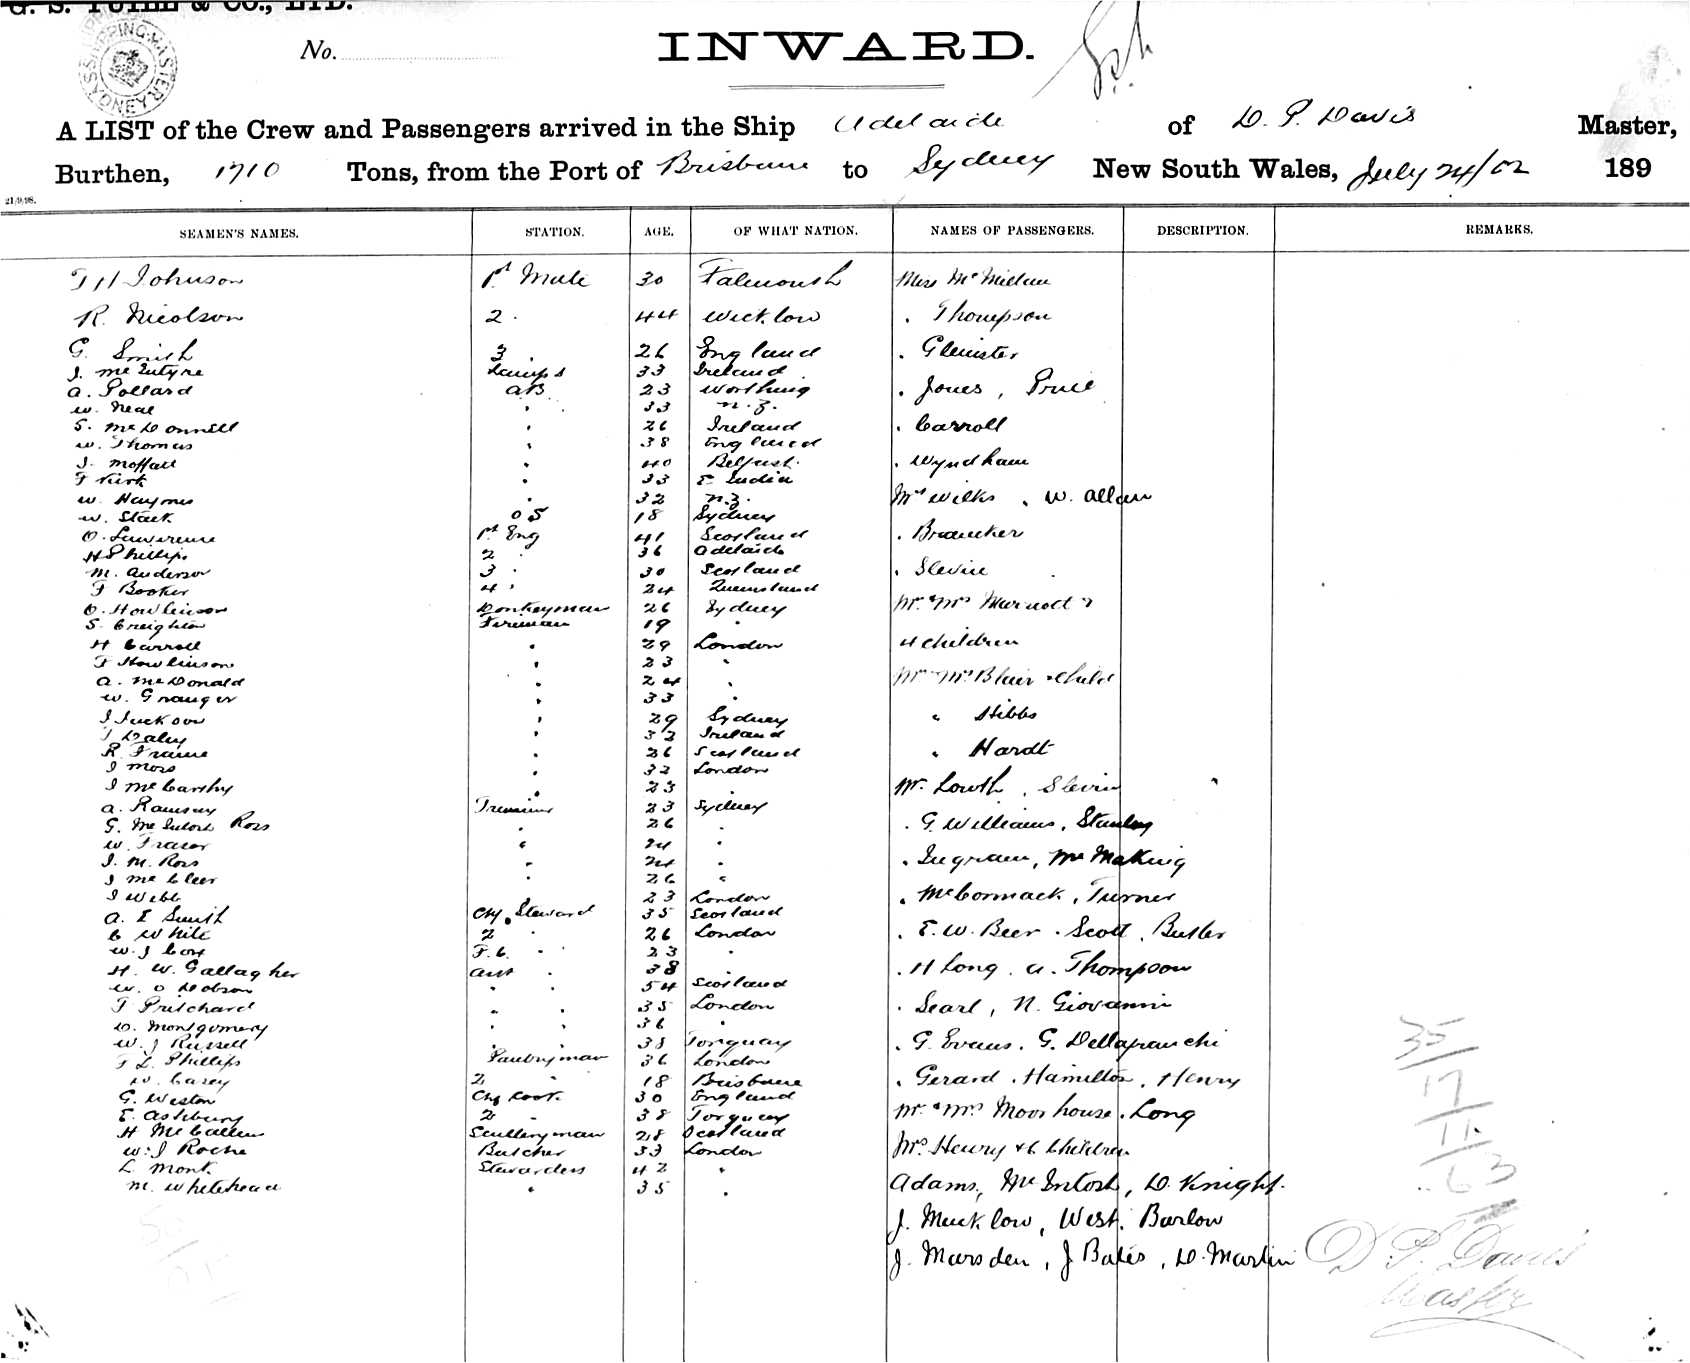 G. S. YUILL & CO., LTD.
SHIPPING MASTER SYDNEY
No.
INWARD.
A LIST of the Crew and Passengers arrived in the Ship Adelaide of D. P. Davis Master,
Burthen, 1710 Tons, from the Port of Brisbane to Sydney New South Wales, July 24/02 189
21/9/98.
SEAMEN'S NAMES. STATION. AGE. OF WHAT NATION. NAMES OF PASSENGERS. DESCRIPTION. REMARKS.
T H Johnson 1st Mate 30 Falmouth Miss McMillan
R. Nicolson 2 . 44 Wicklow . Thompson
G. Smith 3 . 26 England . Glenister
J. McIntyre Lamps 33 Ireland
A. Pollard AB 23 Worthing . Jones, Price
W. Neal . 33 N.Z.
S. McDonnell . 26 Ireland . Carroll
W. Thomas . 38 England
J. Moffatt . 40 Belfast . Wyndham
F Kirk . 33 E India
W. Haynes . 32 N.Z. Mrs Wilks . W. Allan
W. Stack OS 18 Sydney
O. Lawrence 1st Eng 41 Scotland . Braucker
H Phillips 2 . 36 Adelaide
M. Anderson 3 . 30 Scotland . Slevin
F Booker 4 . 24 Queensland
O. Howlinson Donkeyman 26 Sydney Mr & Mrs &
S. Creighton Fireman 19 "
H Carroll . 29 London 4 children
F Howlinson . 23 "
A. McDonald . 24 . Mr Mrs Blair & child
W. Granger . 33 .
J Juckson . 29 Sydney " Hibbs
J Daley . 32 Ireland
R. Frame . 26 Scotland " Hardt
J Moss . 32 London
J McCarthy . 23 . Mr. Lowth . Slevin
A. Ramsay Trimmer 23 Sydney
G. McIntosh Ross . 26 . . G Williams, Stanley
W. Fraser " 24 .
J. M. Ross " 24 . . Ingram, McMaking
J McCleer . 26 "
J Webb 23 London . McCormack, Turner
A. E Smith Chf. Steward 35 Scotland
C White 2 " 26 London . E. W. Beer . Scott . Butler
W. J Cox F.C. " . 23 .
H. W. Gallagher Asst . 38 . . H Long . A. Thompson
W. O Dobson . . 54 Scotland
T Pritchard " . 35 London . Searl, N. Giovanni
D. Montgomery . . 36 "
W. J Russell . . 38 Torquay . G. Evans. G. Dellafranchi
F L. Phillips Pantryman 36 London
W. Carey 2 " 18 Brisbane . Gerard . Hamilton, Henry
G. Weston Chf Cook 30 England
E. Ashbury 2 " 38 Torquay Mr & Mrs Moorhouse . Long
H McCallum Sculleryman 28 Scotland
W. J Roche Butcher 33 London Mrs Henry & 6 Children
L Monk Stewardess 42 "
M. Whitehead " 35 . Adams, McIntosh, D. Knight.
J. Mucklow, West, Barlow
J. Marsden, J Bates, D. Martin
35
17
11
63
D. P. Davis
Master